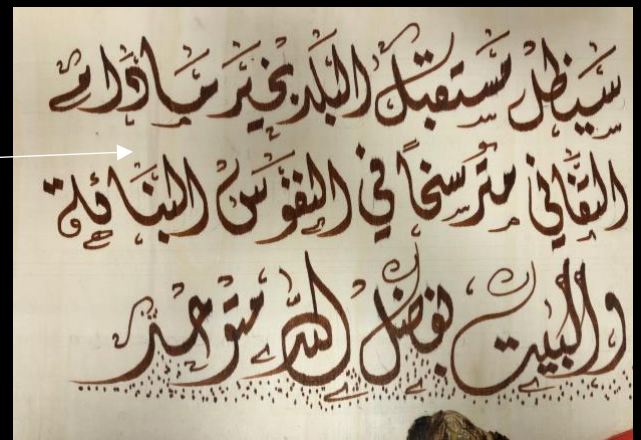 سيظل مستقبل البلد بخير مادام
التفاني مترسخاً في النفوس
والبيت بفضل الله متوحد